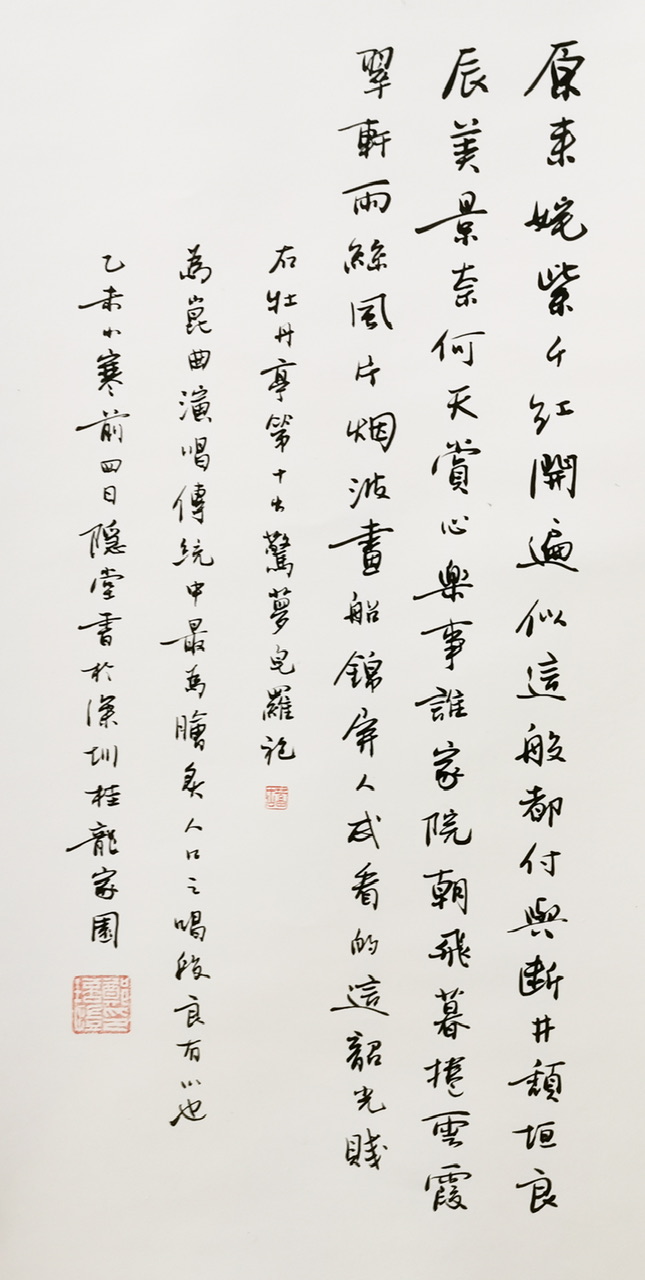 原来姹紫千红開遍似這般都付與断井頹垣良
辰美景奈何天賞心樂事誰家院朝飛暮捲雲霞
翠軒雨絲風片烟波畫船錦屏人忒看的這韶光賤
右牡丹亭第十出驚夢皂羅袍
為崑曲演唱傳統中最為膾炙人口之唱段良有以也
乙未小寒前四日隱堂書於深圳桂龍家園